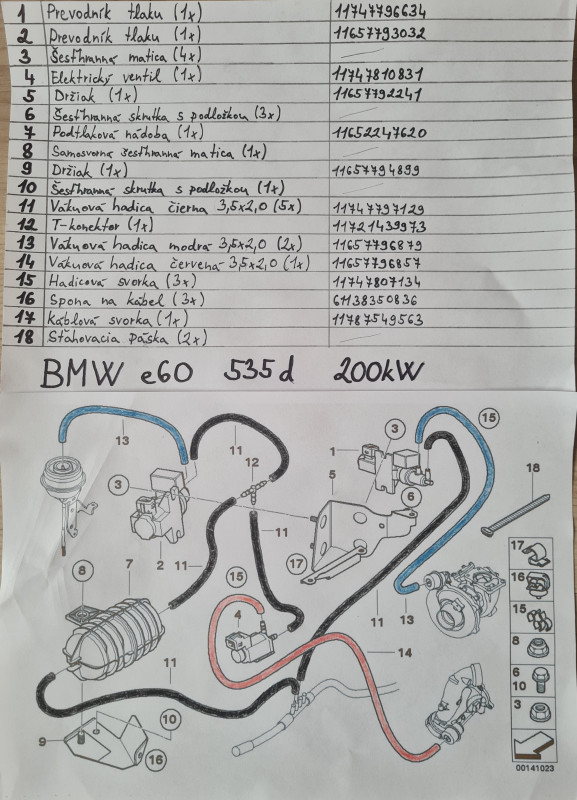 1 Prevodník tlaku (1x) 11747796634
2 Prevodník tlaku (1x) 11657793032
3 Šesťhranná matica (4x)
4 Elektrický ventil (1x) 11747810831
5 Držiak (1x) 11657792241
6 Šesťhranná skrutka s podložkou (3x)
7 Podtlaková nádoba (1x) 11652247620
8 Samosvorná šesťhranná matica (1x)
9 Držiak (1x) 11657794899
10 Šesťhranná skrutka s podložkou (1x)
11 Vákuová hadica čierna 3,5x2,0 (5x) 11747797129
12 T-konektor (1x) 11721439973
13 Vákuová hadica modrá 3,5x2,0 (2x) 11657796879
14 Vákuová hadica červená 3,5x2,0 (1x) 11657796857
15 Hadicová svorka (3x) 11747807134
16 Spona na kábel (3x) 61138350836
17 Káblová svorka (1x) 11787549563
18 Sťahovacia páska (2x)
BMW e60 535d 200kW
13 11 12 3 1 5 3 15
6 18
2 11 11 17
8 7 15 4 11 13
17
16
15
8
6
10
3
11 14
9 10 16
00141023